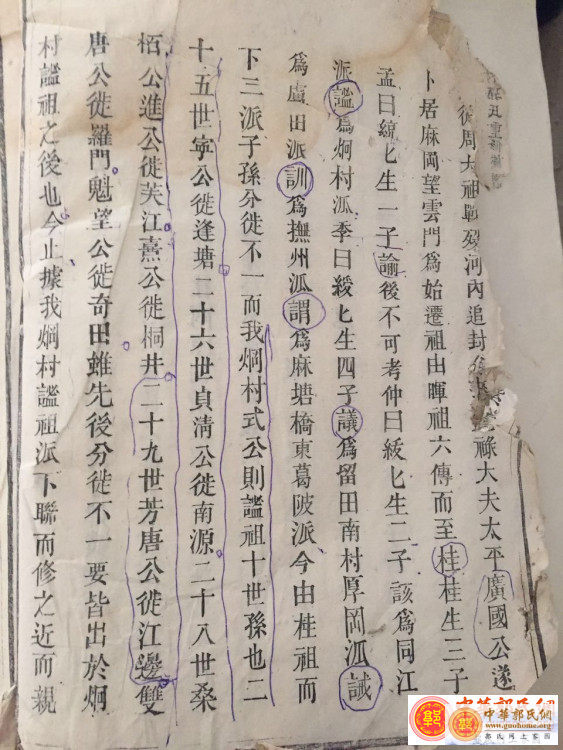 從周太祖戰殁河內追封金祿大夫太平廣國公遂
卜居麻岡望雲門爲始遷祖由暉祖六傳而至桂桂生三子
孟曰縝匕生一子諭後不可考仲曰緩匕生二子該爲同江
派謐爲炯村派季曰綬匕生四子議爲留田南村厚岡派誠
爲廬田派訓爲撫州派謂爲麻塘橋東葛陂派今由桂祖而
下三派子孫分徙不一而我炯村式公則謐祖十世孫也二
十五世寧公徙逢塘二十六世貞清公徙南源二十八世桑
栢公進公徙芙江熹公徙桐井二十九世芳唐公徙江邊雙
唐公徙羅門魁望公徙奇田雖先後分徙不一要皆出於炯
村謐祖之後也今止據我炯村謐祖派下聯而修之近而親
中華郭氏網
www.guohome.org
郭氏網上家園